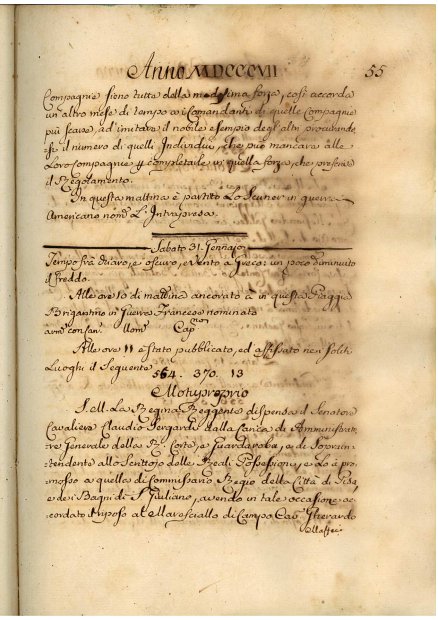 Anno MDCCCVII 55
Compagnie sieno tutte della medesima forza, così accorda
un altro mese di tempo ai Comandanti di quelle Compagnie
più scarse, ad imitare il nobile esempio degl'altri procurando
si il numero di quelli Individui, che può mancare alle
Loro Compagnie p completarle in quella forza, che prescrive
il Regolamento.
In questa mattina è partito Lo Scuner in guerra
Americano nom. L'Intrapresa.
Sabato 31. Gennajo
Tempo frà chiaro, e oscuro, e vento a Greco: un poco diminuito
il freddo.
Alle ore 10 di mattina ancorato à in questa Spiaggia
Brigantino in Guerra Francese nominato
arm. con can. Uom. Cap.
Alle ore 11 è stato pubblicato, ed affissato nei soliti
Luoghi il Seguente
564. 370. 13
Motuproprio
S. M. La Regina Reggente dispensa il Senatore
Cavaliere Claudio Sergardi dalla Carica di Amministrato
re Generale della R. Corte, e Guardaroba, e di Soprain
tendente allo Scrittojo delle Reali Possessioni, e Lo à pro
mosso a quella di Commissario Regio della Città di Pisa
e dei Bagni di S. Giuliano, avendo in tale occasione ac
cordato il riposo al Maresciallo di Campo Cav. Gherardo